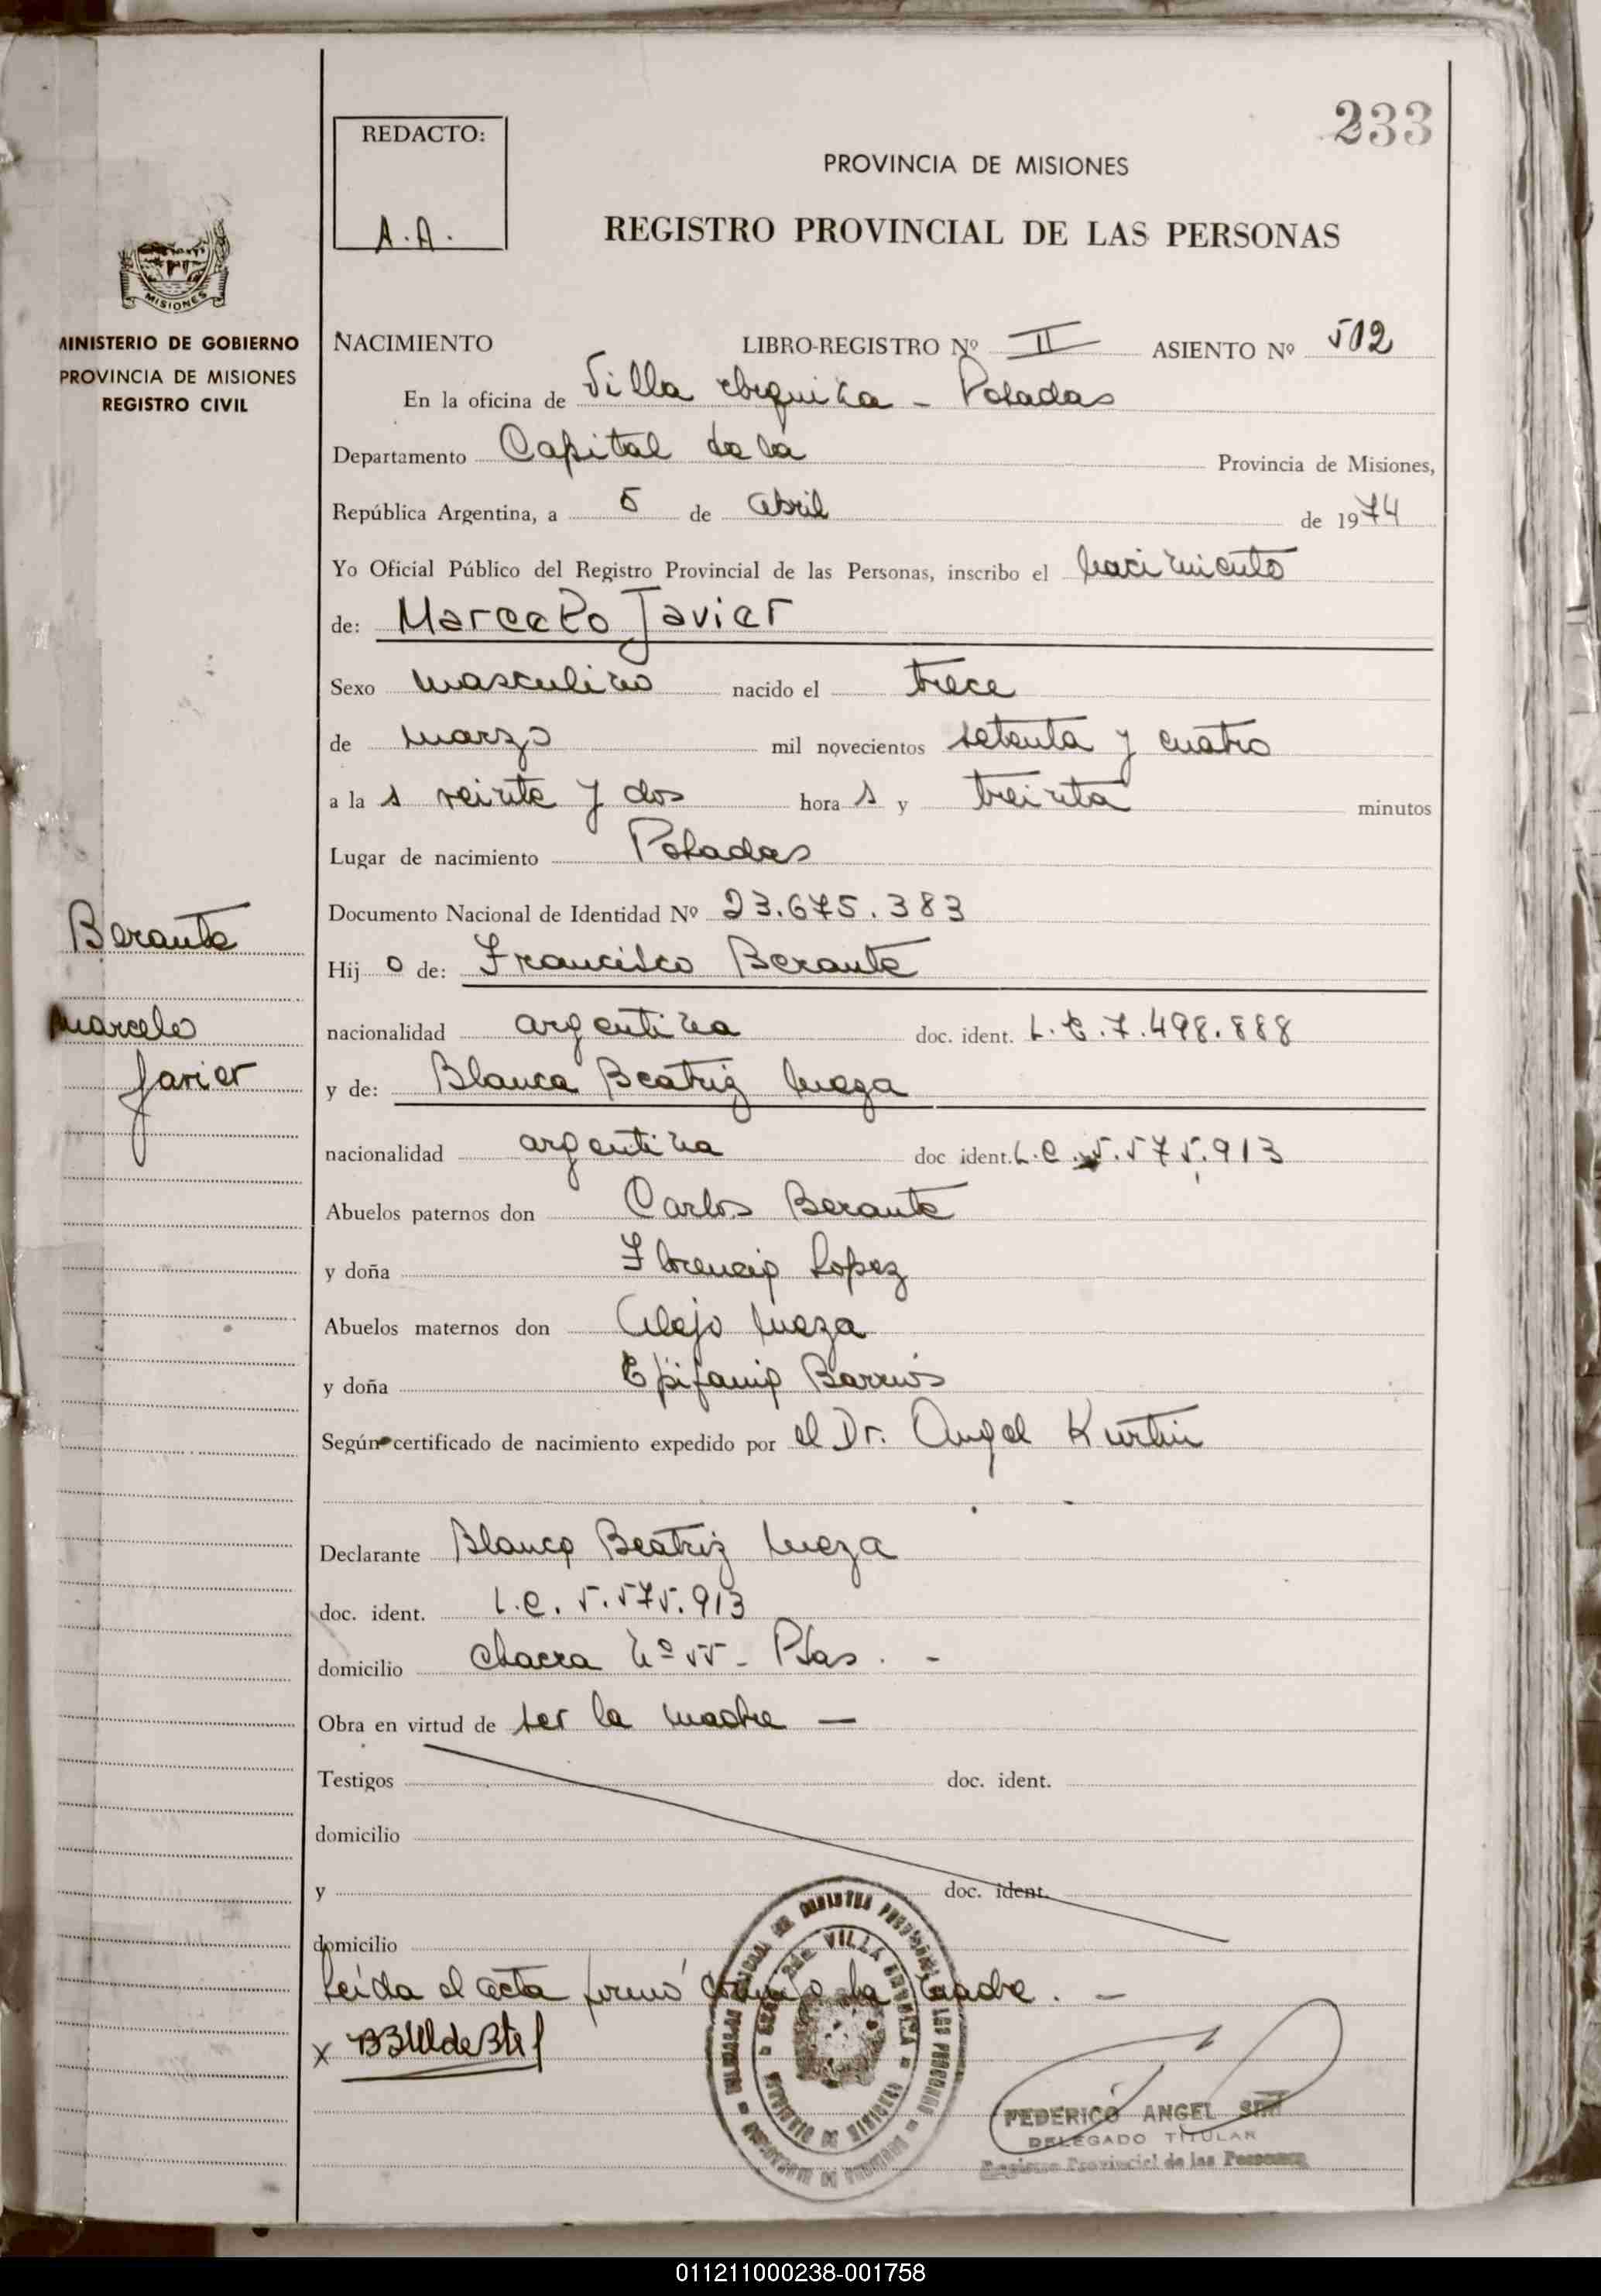 233
REDACTO:
A.A.
PROVINCIA DE MISIONES
REGISTRO PROVINCIAL DE LAS PERSONAS
MISIONES
MINISTERIO DE GOBIERNO
PROVINCIA DE MISIONES
REGISTRO CIVIL
NACIMIENTO LIBRO-REGISTRO Nº II ASIENTO Nº 502
En la oficina de Villa Urquiza - Posadas
Departamento Capital de la Provincia de Misiones,
República Argentina, a 5 de abril de 1974
Yo Oficial Público del Registro Provincial de las Personas, inscribo el nacimiento
de: Marcelo Javier
Sexo masculino nacido el trece
de marzo mil novecientos setenta y cuatro
a la s veinte y dos hora s y treinta minutos
Lugar de nacimiento Posadas
Documento Nacional de Identidad Nº 23.675.383
Berante
Hij o de: Francisco Berante
Marcelo
nacionalidad argentina doc. ident. L.E. 7.498.888
Javier
y de: Blanca Beatriz Meza
nacionalidad argentina doc ident. L.C. 5.575.913
Abuelos paternos don Carlos Berante
y doña Florencia Lopez
Abuelos maternos don Alejo Meza
y doña Epifania Barrios
Según certificado de nacimiento expedido por el Dr. Angel Kurtin
Declarante Blanca Beatriz Meza
doc. ident. L.C. 5.575.913
domicilio chacra Nº 55 - Pdas. -
Obra en virtud de ser la madre —
Testigos doc. ident.
domicilio
y doc. ident.
domicilio
Leída el acta firmó conmigo la madre. -
x
FEDERICO ANGEL
DELEGADO TITULAR
Registro Provincial de las Personas
011211000238-001758